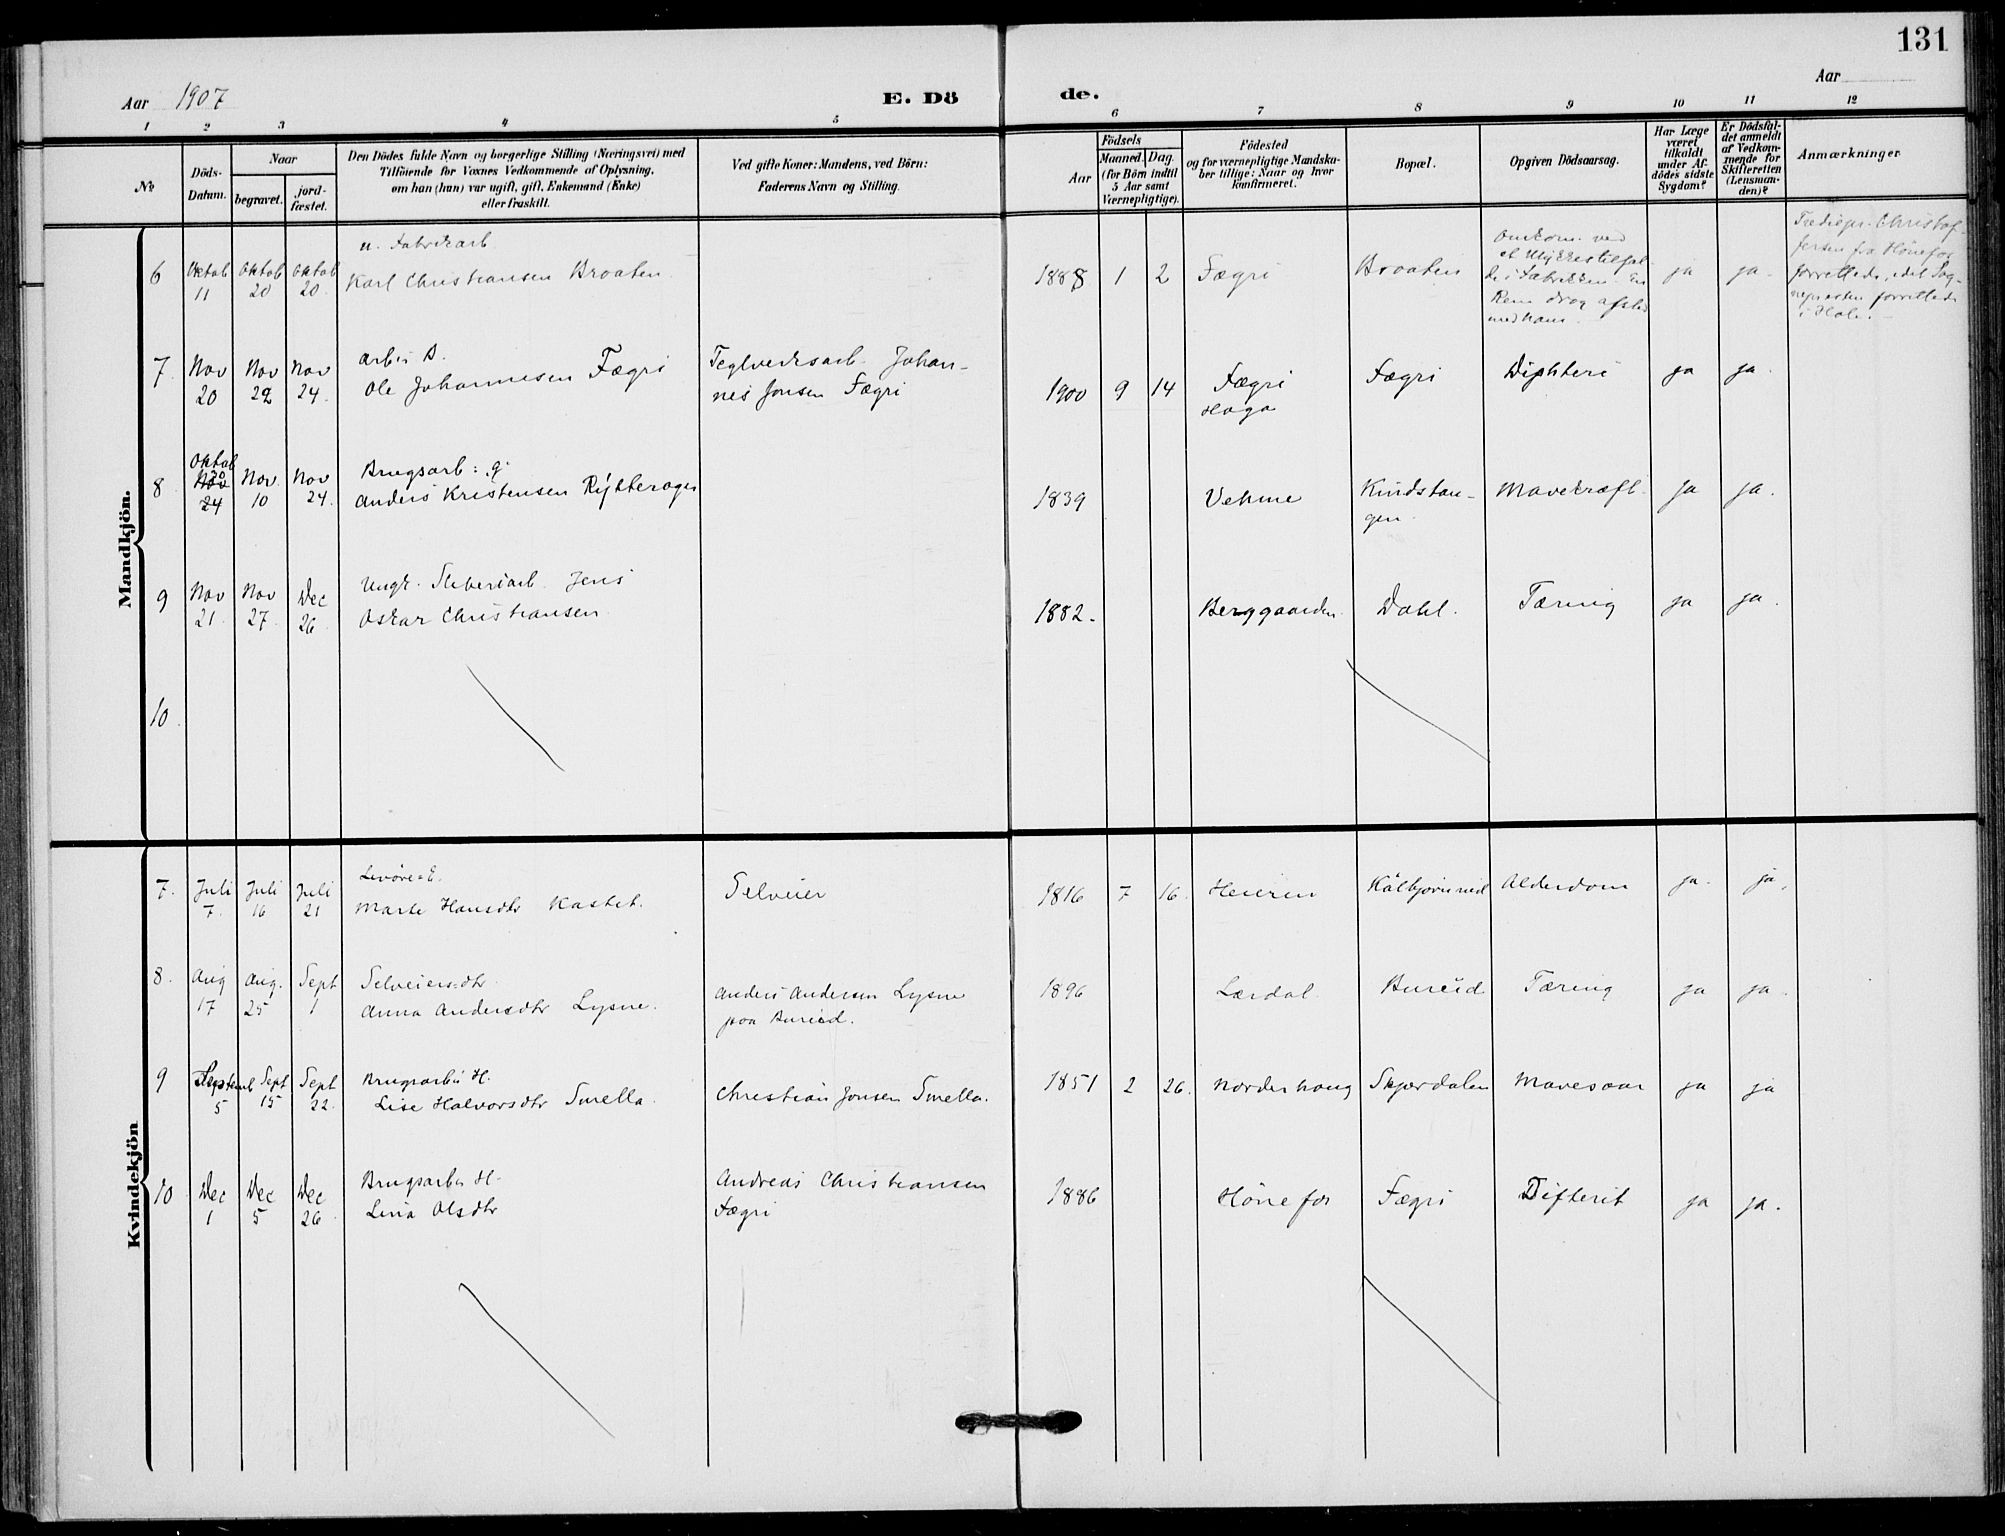 131
Aar 1907
E. Dö
de.
Aar
1 2 3 4 5 6 7 8 9 10 11 12
No
Döds-
Datum.
Naar
begravet.
jord-
fæstet.
Den Dödes fulde Navn og borgerlige Stilling (Næringsvei) med
Tilföiende for Voxnes Vedkommende af Oplysning,
om han (hun) var ugift, gift, Enkemand (Enke)
eller fraskilt.
Ved gifte Koner: Mandens, ved Börn:
Faderens Navn og Stilling.
Födsels
Aar
Maaned. Dag.
(for Börn indtil
5 Aar samt
Værnepligtige).
Födested
og for værnepligtige Mandska-
ber tillige: Naar og hvor
konfirmeret.
Bopæl.
Opgiven Dödsaarsag.
Har Læge
været
tilkaldt
under Af-
dödes sidste
Sygdom?
Er Dödsfal-
det anmeldt
af Vedkom-
mende for
Skifteretten
(Lensman-
den)?
Anmærkninger
Mandkjön.
6 Oktob 11 Oktob 20 Oktob 20
u. Fabrikarb.
Karl Christiansen Braaten
1888 1 2 Fægri Braaten
Omkom. ved
et Ulykkestilfæl-
de i Fabrikken. En
Rem drog afsted
med ham.
ja ja.
Christof-
fersen fra Hönefos
forrettede, idet Sog-
nepresten forrettede
i Hole.
7. Nov 20 Nov 29 Nov 24.
arb: B.
Ole Johannesen Fægri
Teglverksarb. Johan-
nes Jonsen Fægri
1900 9 14 Fægri
Haga
Fægri Diphteri ja ja.
8 Oktob 30 Nov 24 Nov. 10 Nov 24.
Brugsarb: g.
Anders Kristensen Rytterager
1839 Vehme Kindstan-
gen.
Mavekræft. ja ja.
9 Nov 21 Nov 27. Dec 26
Ungk. Sliberiarb. Jens
Oskar Christiansen
1882. Berggaarden Dahl. Tæring ja ja.
10.
Kvindekjön
7. Juli 7. Juli 16 Juli 21
Livöre=E.
Marte Hansdtr Kastet.
Selveier
1816 7 16. Heieren Alderdom ja. ja.
8. Aug 17 Aug. 25 Sept 1
Selveiers=dtr.
Anna Andersdtr Lysne.
Anders Andersen Lysne
paa Bureid.
1896 Lærdal. Bureid Tæring ja ja.
9 Septemb 5 Sept 15 Sept 22.
Brugsarb: H.
Lise Halvorsdtr Smella.
Christian Jonsen Smella.
1851 2 26. Norderhoug Skjærdalen Mavesaar ja ja
10 Dec 1 Dec 5 Dec 26
Brugsarb: H.
Lina Olsdtr
Andreas Christiansen
Fægri
1886 Hönefos Fægri Difterit ja ja.